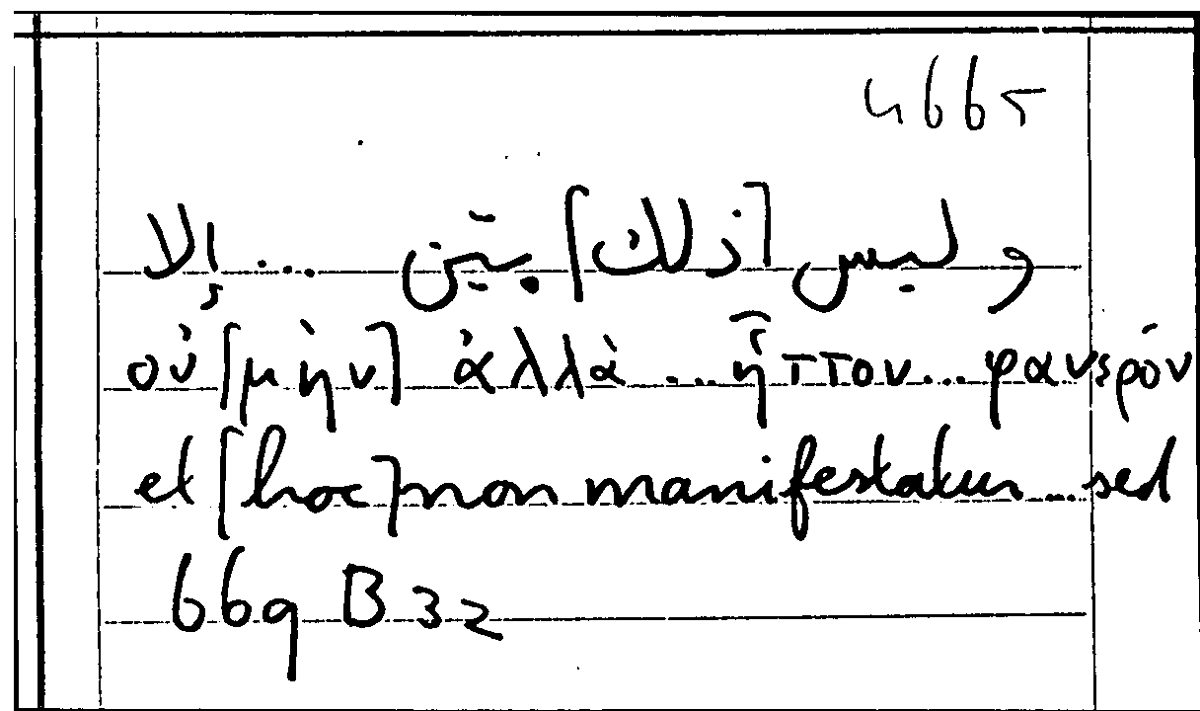 4665
وليس [ذلك] بيّن ... إلا
οὐ [μὴν] ἀλλὰ ... ἧττον ... φανερόν
et [hoc] non manifestatur ... sed
669 B 32